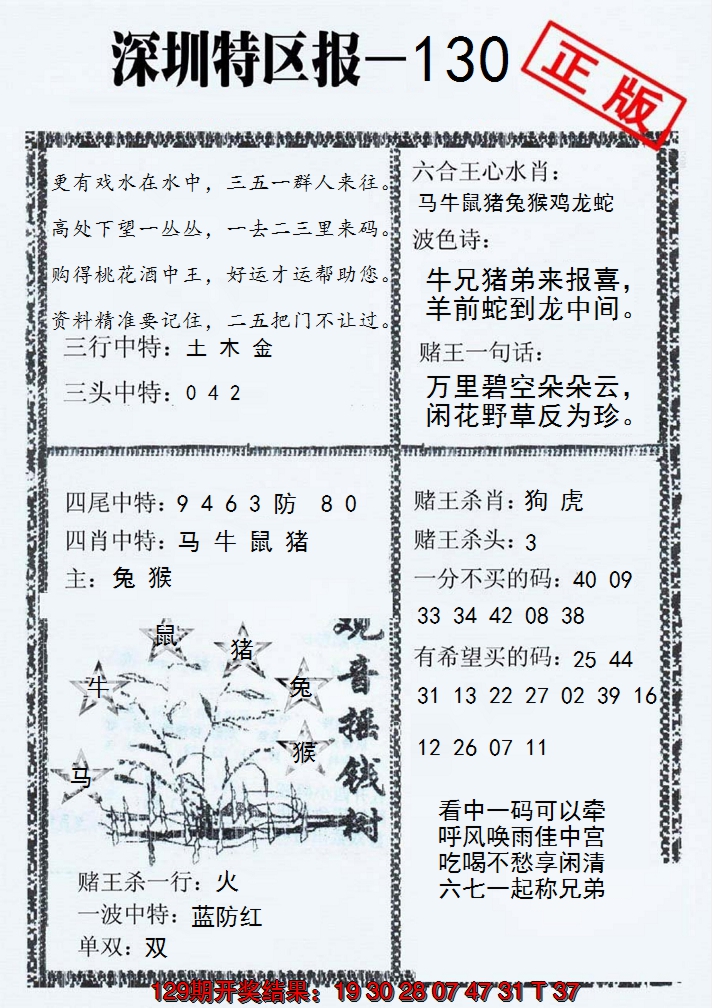 深圳特区报—130
正版
更有戏水在水中，三五一群人来往。
高处下望一丛丛，一去二三里来码。
购得桃花酒中王，好运才运帮助您。
资料精准要记住，二五把门不让过。
三行中特：土 木 金
三头中特：0 4 2
六合王心水肖：
马牛鼠猪兔猴鸡龙蛇
波色诗：
牛兄猪弟来报喜，
羊前蛇到龙中间。
赌王一句话：
万里碧空朵朵云，
闲花野草反为珍。
四尾中特：9 4 6 3 防 8 0
四肖中特：马 牛 鼠 猪
主：兔 猴
鼠
猪
牛
兔
猴
马
观音摇钱树
赌王杀一行：火
一波中特：蓝防红
单双：双
赌王杀肖：狗 虎
赌王杀头：3
一分不买的码：40 09
33 34 42 08 38
有希望买的码：25 44
31 13 22 27 02 39 16
12 26 07 11
看中一码可以牵
呼风唤雨佳中宫
吃喝不愁享闲清
六七一起称兄弟
129期开奖结果：19 30 28 07 47 31 T 37